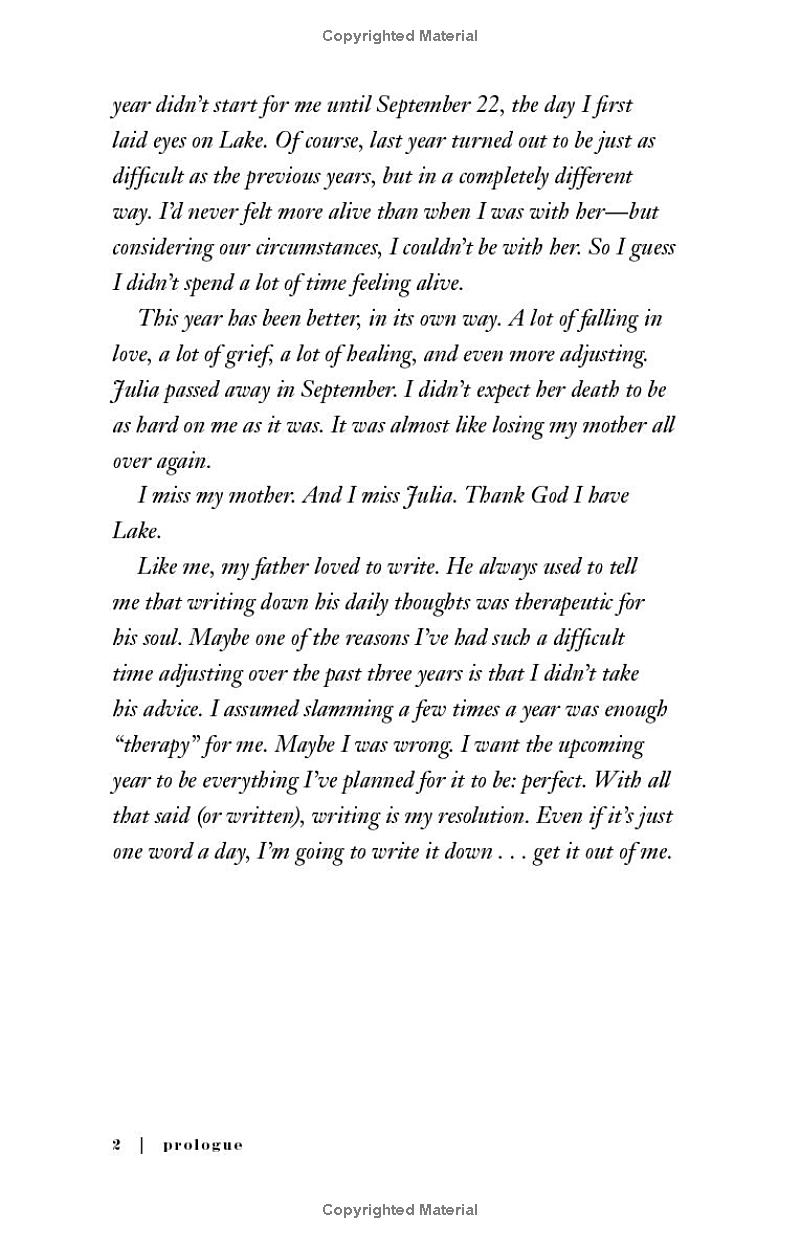 Copyrighted Material
year didn't start for me until September 22, the day I first
laid eyes on Lake. Of course, last year turned out to be just as
difficult as the previous years, but in a completely different
way. I'd never felt more alive than when I was with her—but
considering our circumstances, I couldn't be with her. So I guess
I didn't spend a lot of time feeling alive.
This year has been better, in its own way. A lot of falling in
love, a lot of grief, a lot of healing, and even more adjusting.
Julia passed away in September. I didn't expect her death to be
as hard on me as it was. It was almost like losing my mother all
over again.
I miss my mother. And I miss Julia. Thank God I have
Lake.
Like me, my father loved to write. He always used to tell
me that writing down his daily thoughts was therapeutic for
his soul. Maybe one of the reasons I've had such a difficult
time adjusting over the past three years is that I didn't take
his advice. I assumed slamming a few times a year was enough
“therapy” for me. Maybe I was wrong. I want the upcoming
year to be everything I've planned for it to be: perfect. With all
that said (or written), writing is my resolution. Even if it's just
one word a day, I'm going to write it down . . . get it out of me.
2 | prologue
Copyrighted Material